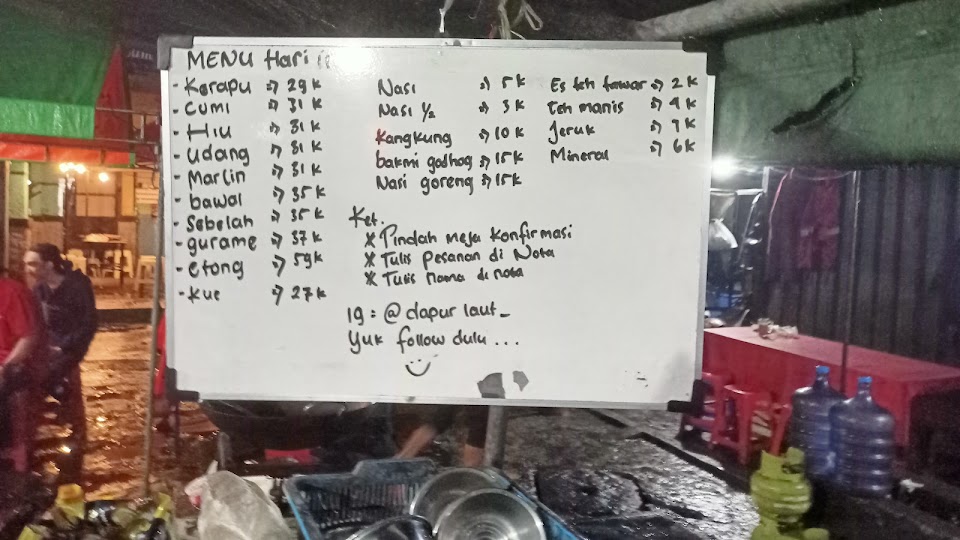 MENU Hari
- Kerapu => 29 k
- Cumi => 31 k
- Hiu => 31 k
- Udang => 31 k
- Marlin => 31 k
- bawal => 35 k
- Sebelah => 35 k
- gurame => 37 k
- etong => 59 k
- Kue => 27 k
Nasi => 5 k
Nasi 1/2 => 3 k
Kangkung => 10 k
bakmi godhog => 15 k
Nasi goreng => 15 k
Es teh tawar => 2 k
Teh manis => 4 k
Jeruk => 7 k
Mineral => 6 k
Ket.
* Pindah meja Konfirmasi
* Tulis Pesanan di Nota
* Tulis nama di nota
ig : @dapur laut_
Yuk follow dulu ...